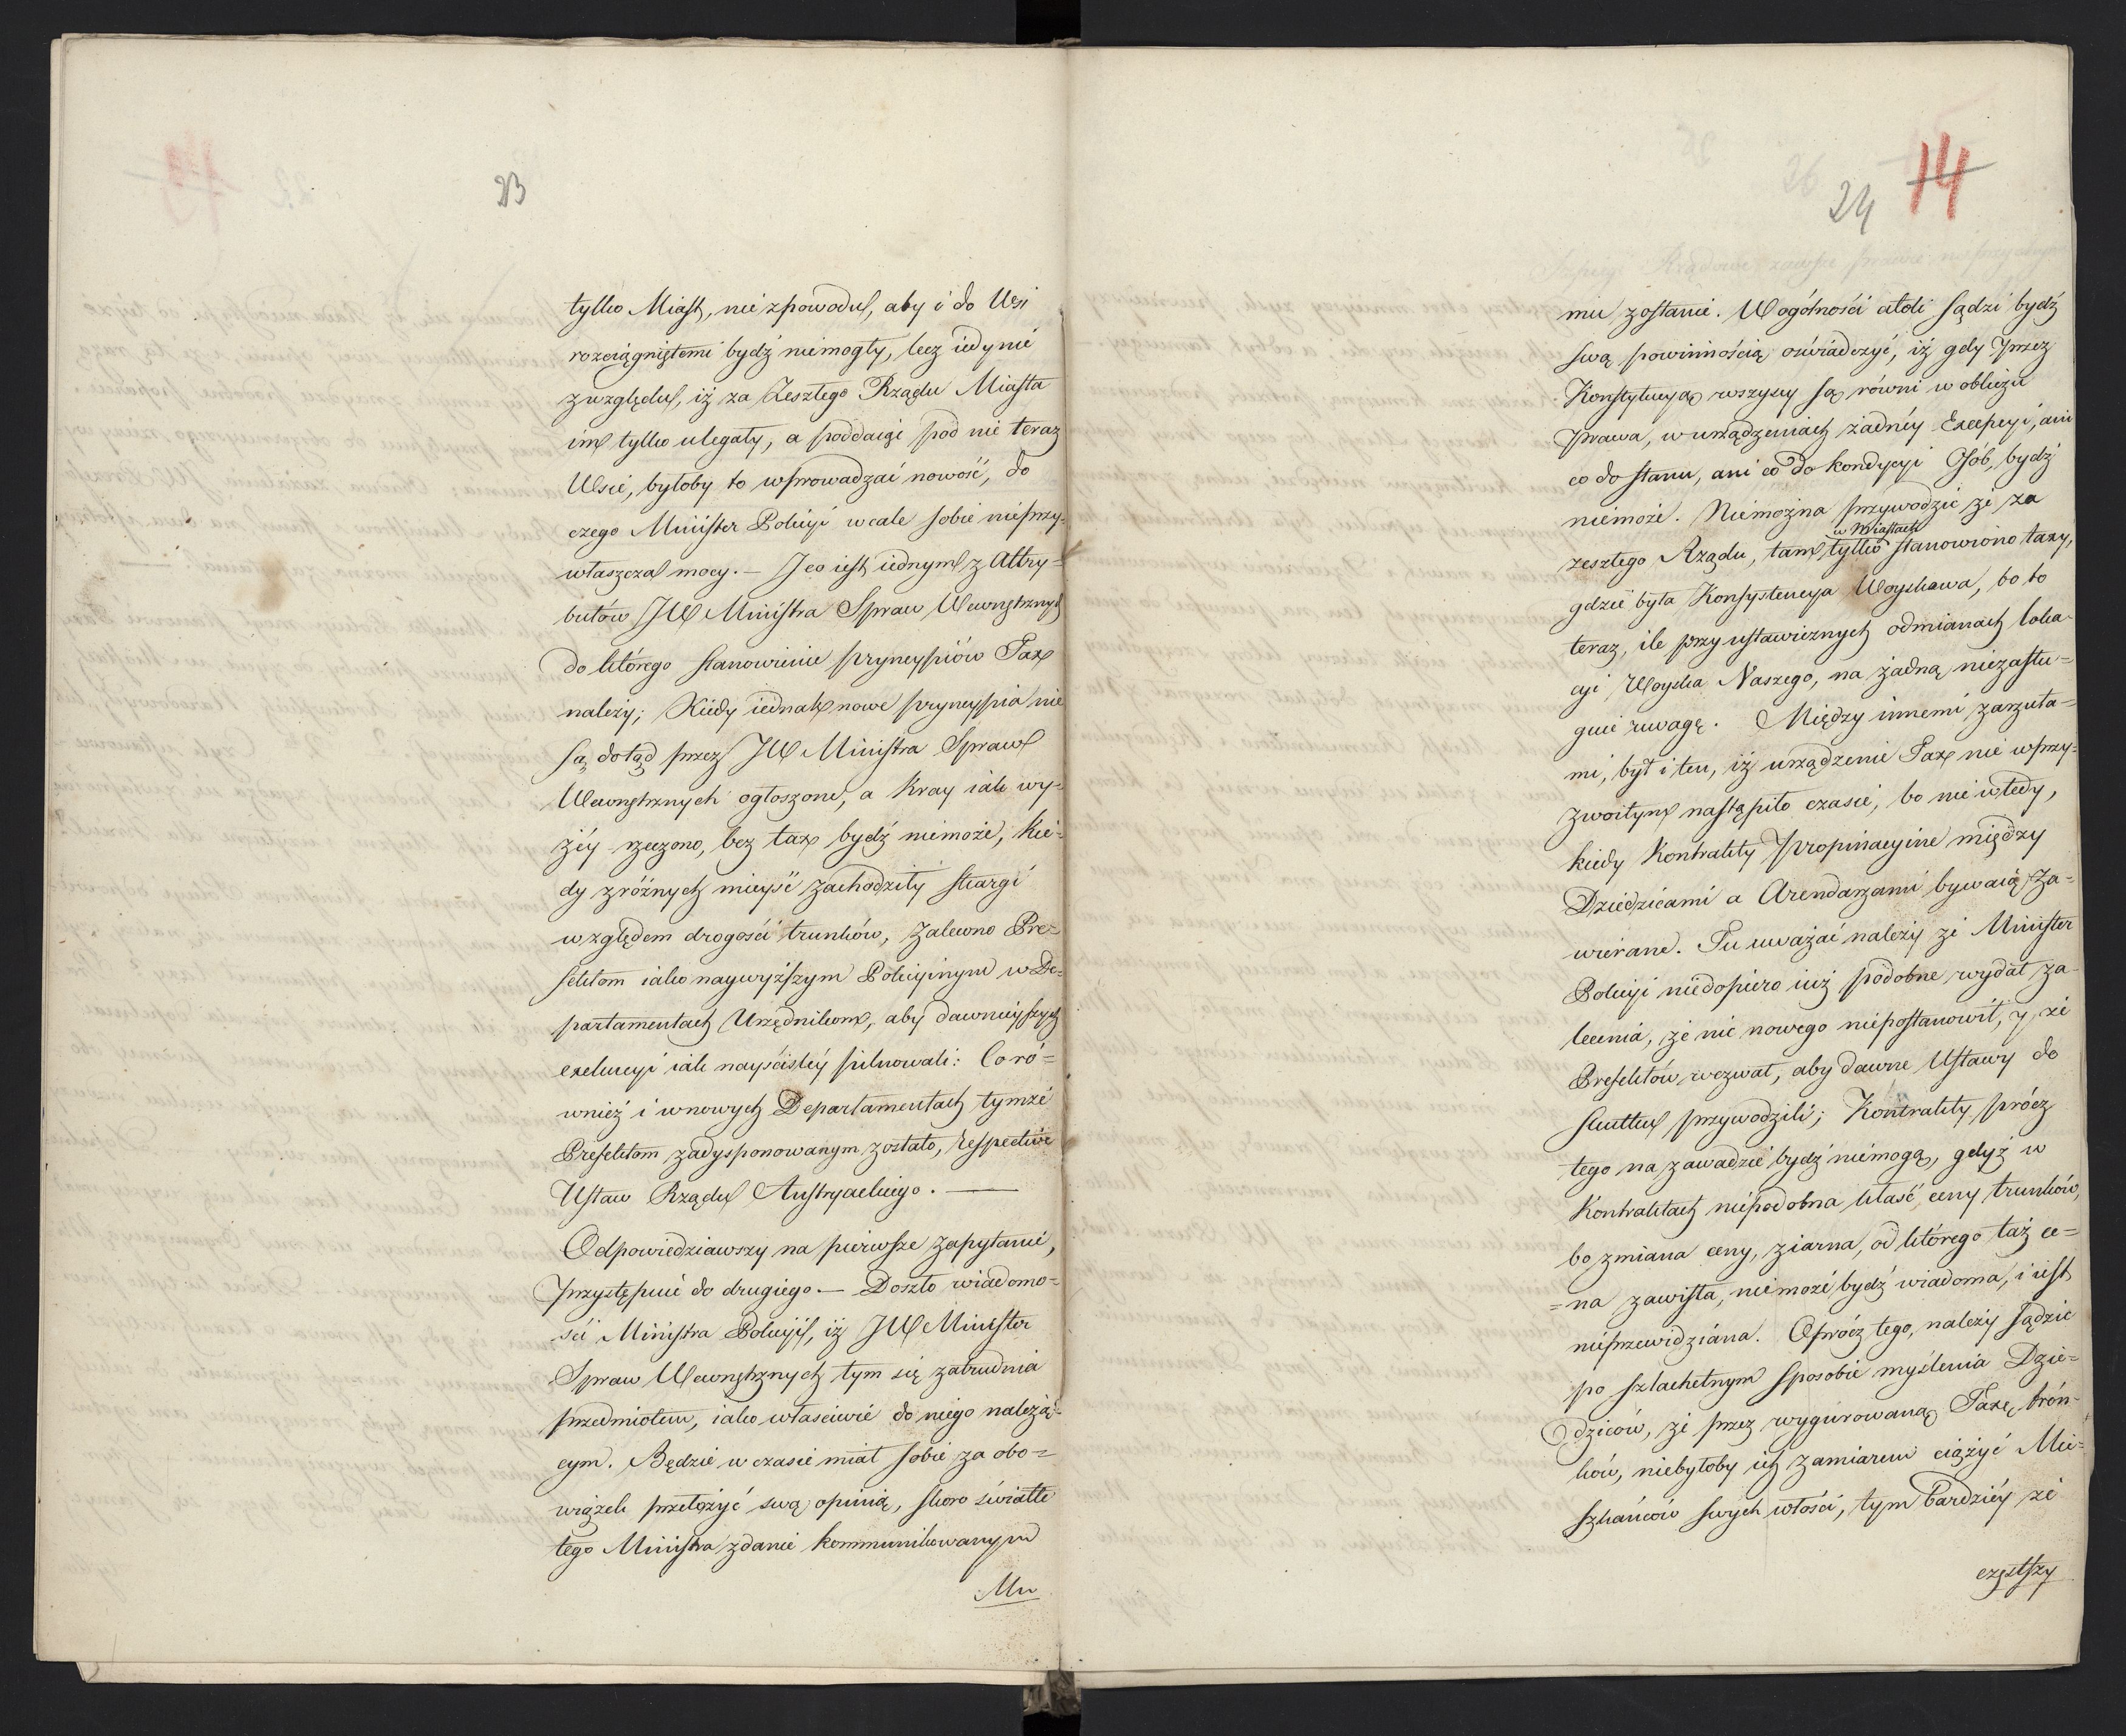 23
tylko Miast, nie zpowodu, aby i do Wsi
rozciągniętemi bydź niemogły, lecz iedynie
zwzględu, iż za Zeszłego Rządu Miasta
im tylko ulegały, a poddaiąc pod nie teraz
Wsie, byłoby to wprowadzać nowość, do
czego Minister Policyi wcale sobie nieprzy-
właszczał mocy. — I co iest iednym z Attry=
butów JW Ministra Spraw Wewnętrznych
do którego stanowienie pryncypiów Tax
należy; Kiedy iednak nowe pryncypia nie
są dotąd przez JW Ministra Spraw
Wewnętrznych ogłoszone, a Kray iak wy=
żéy rzeczono, bez tax bydź niemoże, Kie=
dy zróżnych mieysc zachodziły skargi
względem drogości trunków, Zalecono Pre=
fektom iako naywyższym Policyinym w De=
partamentach Urzędnikom, aby dawnieyszych
exekucyi iak nayściśléy pilnowali: Co ró=
wnież i wnowych Departamentach tymże
Prefektom zadysponowanym zostało, respective
Ustaw Rządu Austryackiego. —
Odpowiedziawszy na pierwsze zapytanie,
Przystępuie do drugiego. — Doszło wiadomo=
ści Ministra Policyi, iż JW Minister
Spraw Wewnętrznych tym się zatrudnia
przedmiotem, iako właściwie do niego należą=
cym. Będzie w czasie miał sobie za obo=
wiązek przełożyć swą opinią, skoro światłe
tego Ministra zdanie kommunikowanym
Mu
26
24
14
mu zostanie. W ogólności atoli sądzi bydź
swą powinnością oświadczyć, iż gdy przez
Konstytucyą wszyscy są równi w obliczu
Prawa, w urządzeniach żadnéy Excepcyi, ani
co do stanu, ani co do kondycyi Osób, bydź
niemoże. Niemożna przywodzić że za
w Miastach
zeszłego Rządu, tam tylko stanowiono taxy,
gdzie była Konsystencya Woyskowa, bo to
teraz, ile przy ustawicznych odmianach loka-
cyi Woyska Naszego, na żadną niezasłu=
guie uwagę. Między innemi zarzuta=
mi, był i ten, iż urządzenie Tax nie wprzy-
zwoitym nastąpiło czasie, bo nie wtedy,
kiedy Kontrakty Propinacyine między
Dziedzicami a Arendarzami bywaią za=
wierane. Tu uważać należy że Minister
Policyi niedopiero iuż podobne wydał za-
lecenia, że nic nowego niepostanowił, y że
Prefektów wezwał, aby dawne Ustawy do
skutku przywodzili; Kontrakty prócz
tego na zawadzie bydź niemogą, gdyż w
Kontraktach niepodobna kłaść ceny trunków,
bo zmiana ceny, ziarna, od którego taż ce=
=na zawisła, niemoże bydź wiadoma, i iest
nieprzewidziana. Oprócz tego, należy sądzić
po szlachetnym sposobie myślenia Dzie=
dziców, że przez wygurowaną Taxę trón-
ków, niebyłoby ich zamiarem ciążyć Mie=
szkańców swych włości, tym bardziéy że
częstszy